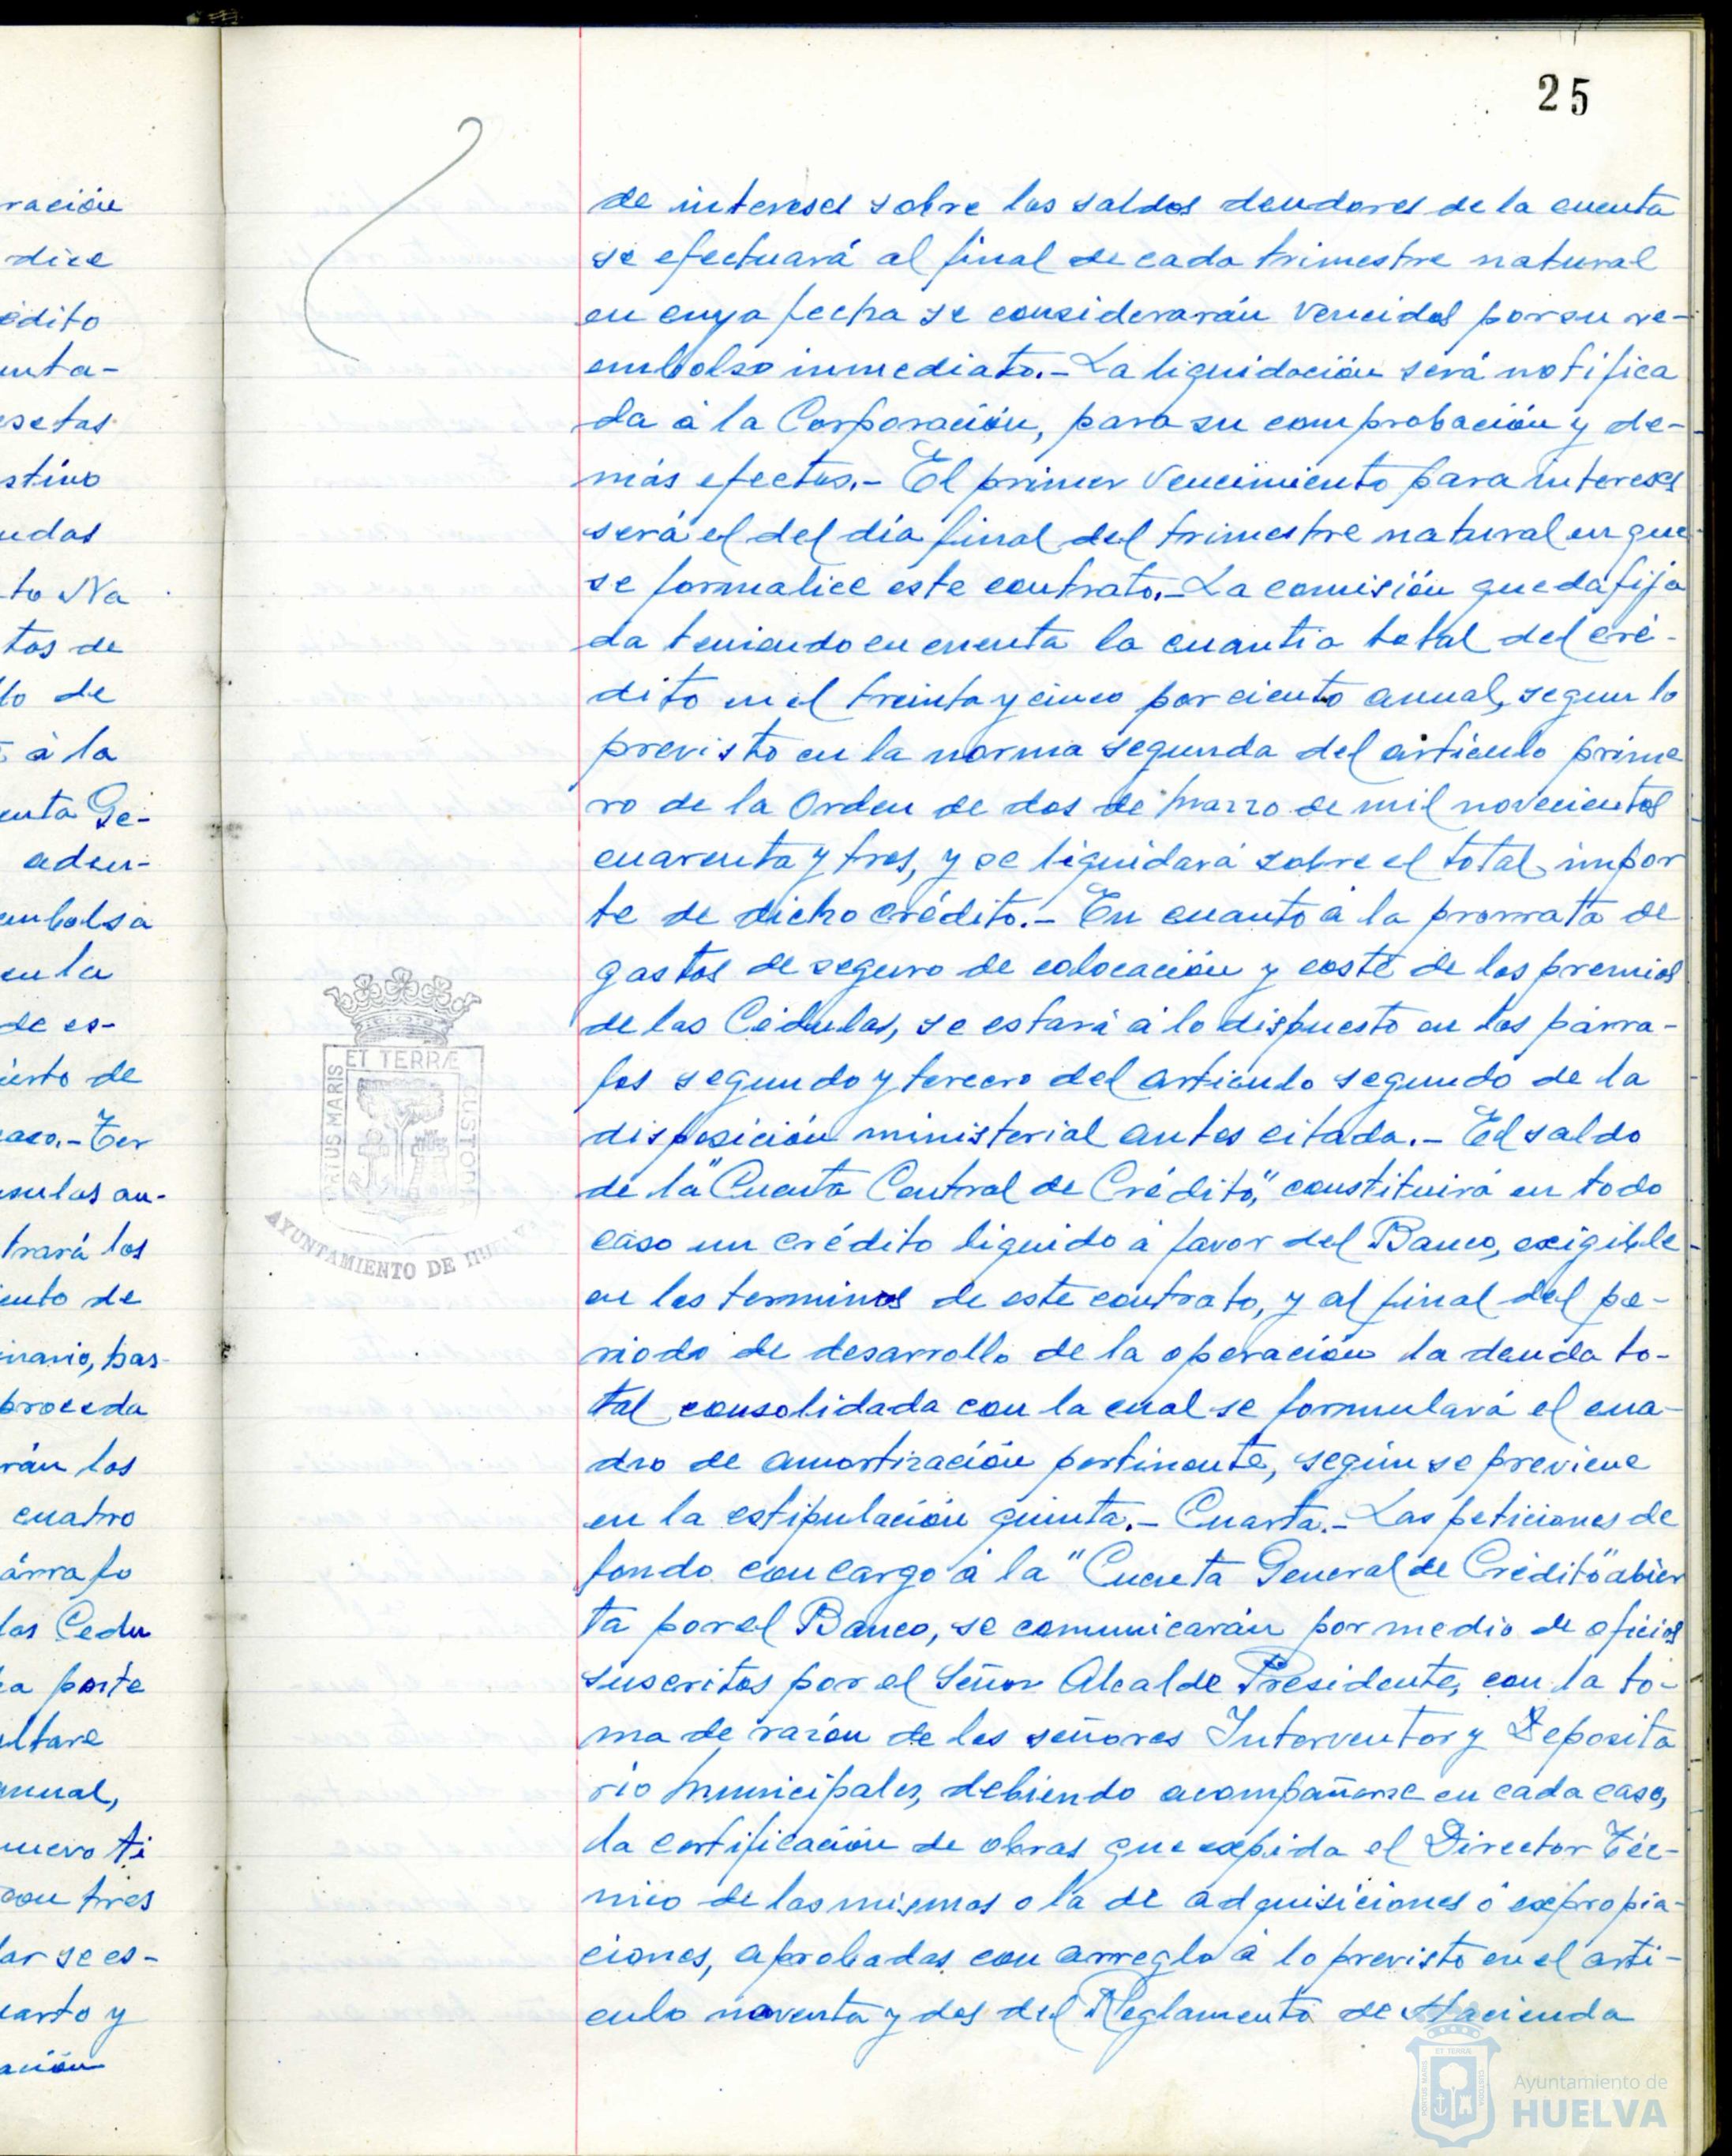 25
ración
dice
édito
unta-
esetas
stino
udas
to Na
tos de
lo de
à la
enta Ge-
adeu-
embolsa
en la
de es-
iento de
aco.- Ter
sulas an-
trará los
ento de
inario, bas-
proceda
rán los
cuatro
árrafo
las Cedu
a parte
ultare
anual,
nuevo ti
con tres
lar se es-
uarto y
ación
de intereses sobre los saldos deudores de la cuenta
se efectuará al final de cada trimestre natural
en cuya fecha se considerarán vencidos por su re-
embolso inmediato.- La liquidación será notifica
da à la Corporación, para su comprobación y de-
más efectos.- El primer vencimiento para intereses
será el del día final del trimestre natural en que
se formalice este contrato.- La comisión queda fija
da teniendo en cuenta la cuantia total del cré-
dito en el treinta y cinco por ciento anual, segun lo
previsto en la norma segunda del articulo prime
ro de la Orden de dos de marzo de mil novecientos
cuarenta y tres, y se liquidará sobre el total impor
te de dicho crédito.- En cuanto à la prorrata de
gastos de seguro de colocación y coste de los premios
de las Cédulas, se estará à lo dispuesto en los párra-
fos segundo y tercero del articulo segundo de la
disposición ministerial antes citada.- El saldo
de la "Cuenta Central de Crédito", constituirá en todo
caso un crédito liquido à favor del Banco, exigible
en los terminos de este contrato, y al final del pe-
riodo de desarrollo de la operación la deuda to-
tal consolidada con la cual se formulará el cua-
dro de amortización pertinente, según se previene
en la estipulación quinta.- Cuarta.- Las peticiones de
fondo con cargo à la "Cuenta General de Crédito" abier
ta por el Banco, se comunicarán por medio de oficios
suscritos por el Señor Alcalde Presidente, con la to-
ma de razón de los señores Interventor y Deposita
rio municipales, debiendo acompañarse en cada caso,
la certificación de obras que expida el Director Téc-
nico de las mismas o la de adquisiciones ó expropia-
ciones, aprobadas con arreglo à lo previsto en el arti-
culo noventa y dos del Reglamento de Hacienda
PORTUS MARIS ET TERRÆ CUSTODIA
AYUNTAMIENTO DE HUELVA
Ayuntamiento de
HUELVA